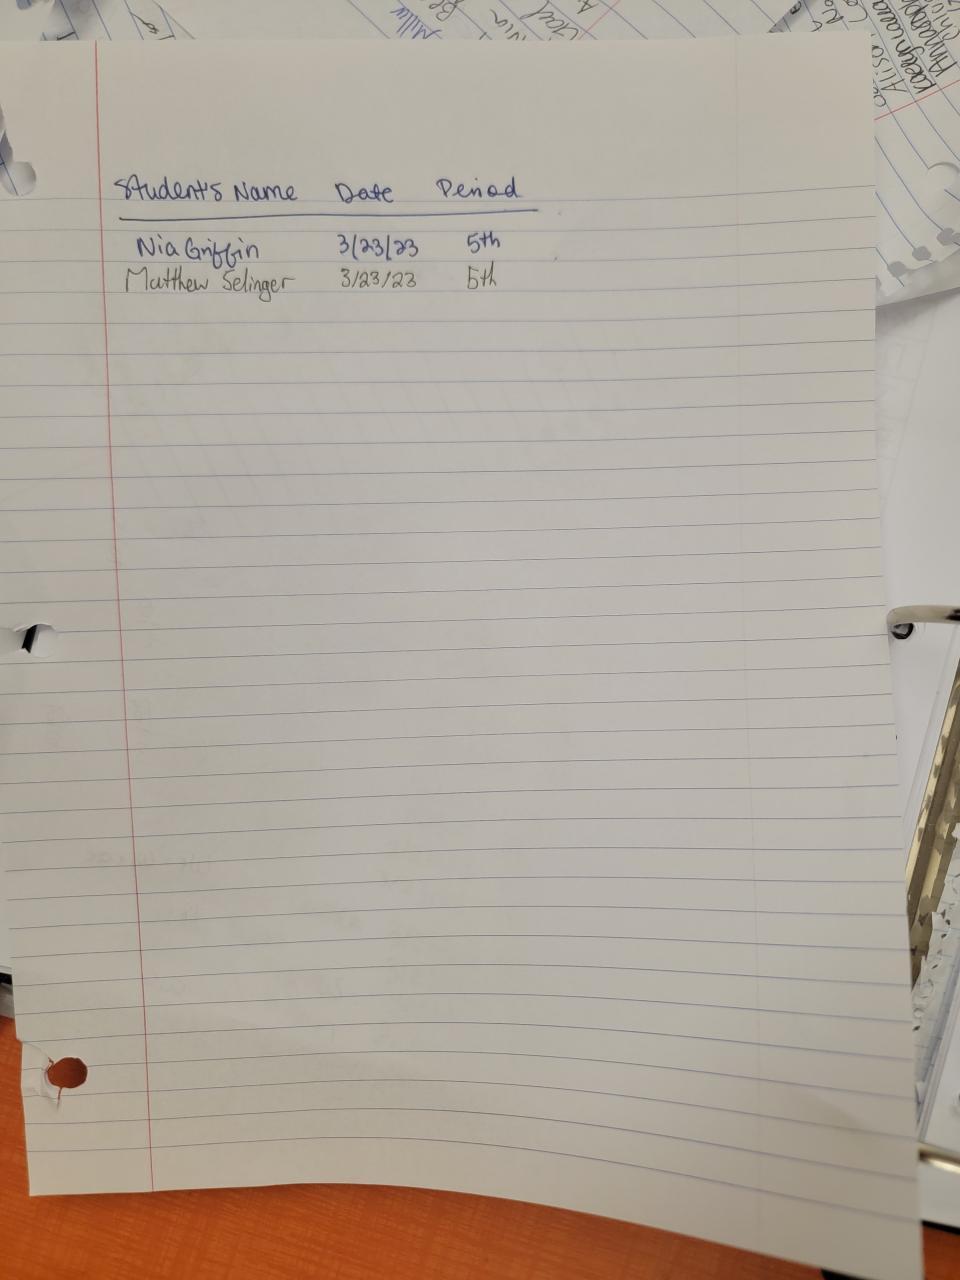 Student's Name Date Period
Nia Griffin 3/23/23 5th
Matthew Selinger 3/23/23 5th
Miller
Gael
Nia
Alison